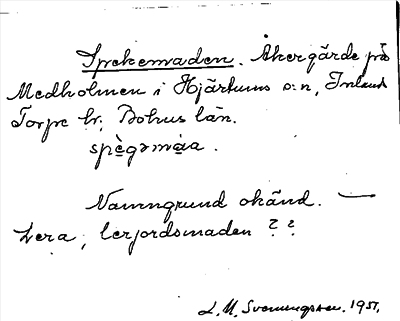 Spekemaden. Åkergärde på
Medholmen i Hjärtums s:n, Inland
Torpe hr, Bohus län.
spègəmàa.
Namngrund okänd. —
Lera, lerjordsmaden ??
L. M. Svenungsson. 1951.